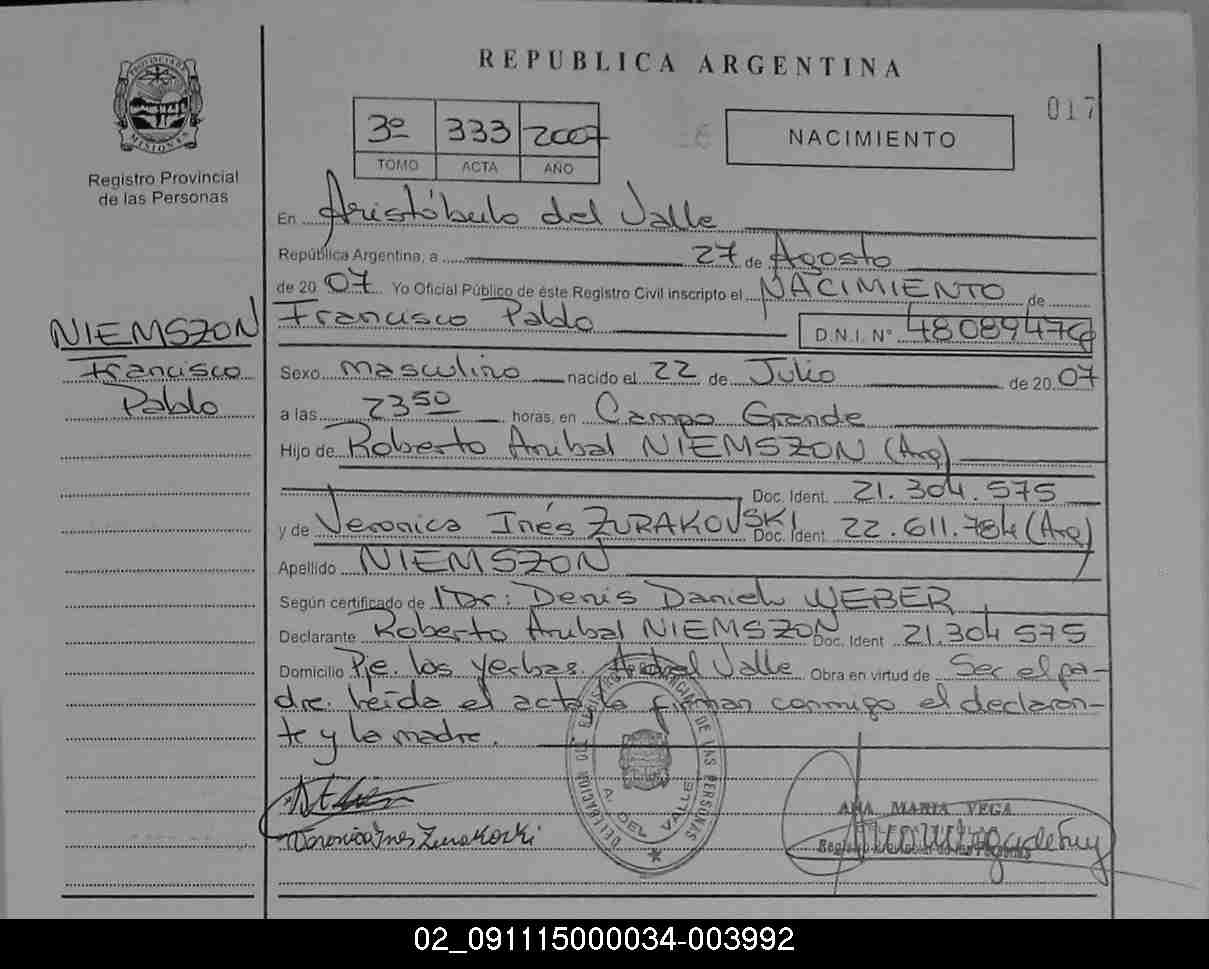 REPUBLICA ARGENTINA
PROVINCIA DE MISIONES
Registro Provincial
de las Personas
3º 333 2007
TOMO ACTA AÑO
NACIMIENTO
017
En Aristóbulo del Valle
República Argentina, a 27 de Agosto
de 2007 Yo Oficial Público de éste Registro Civil inscripto el NACIMIENTO de
Francisco Pablo D.N.I. Nº 48089476
NIEMSZON
Francisco
Pablo
Sexo masculino nacido el 22 de Julio de 2007
a las 23 50 horas, en Campo Grande
Hijo de Roberto Anibal NIEMSZON (Arg)
Doc. Ident. 21.304.575
y de Veronica Inés ZURAKOVSKI Doc. Ident. 22.611.784 (Arg)
Apellido NIEMSZON
Según certificado de Dr: Denis Daniel WEBER
Declarante Roberto Anibal NIEMSZON Doc. Ident 21.304 575
Domicilio Pje. los yerbas. A. del Valle Obra en virtud de Ser el pa-
dre. Leída el acta, la firman conmigo el declaran-
te y la madre.
DELEGACION DEL REGISTRO PROVINCIAL DE LAS PERSONAS
A. DEL VALLE
Veronica Ines Zurakovski
ANA MARIA VEGA
02_091115000034-003992